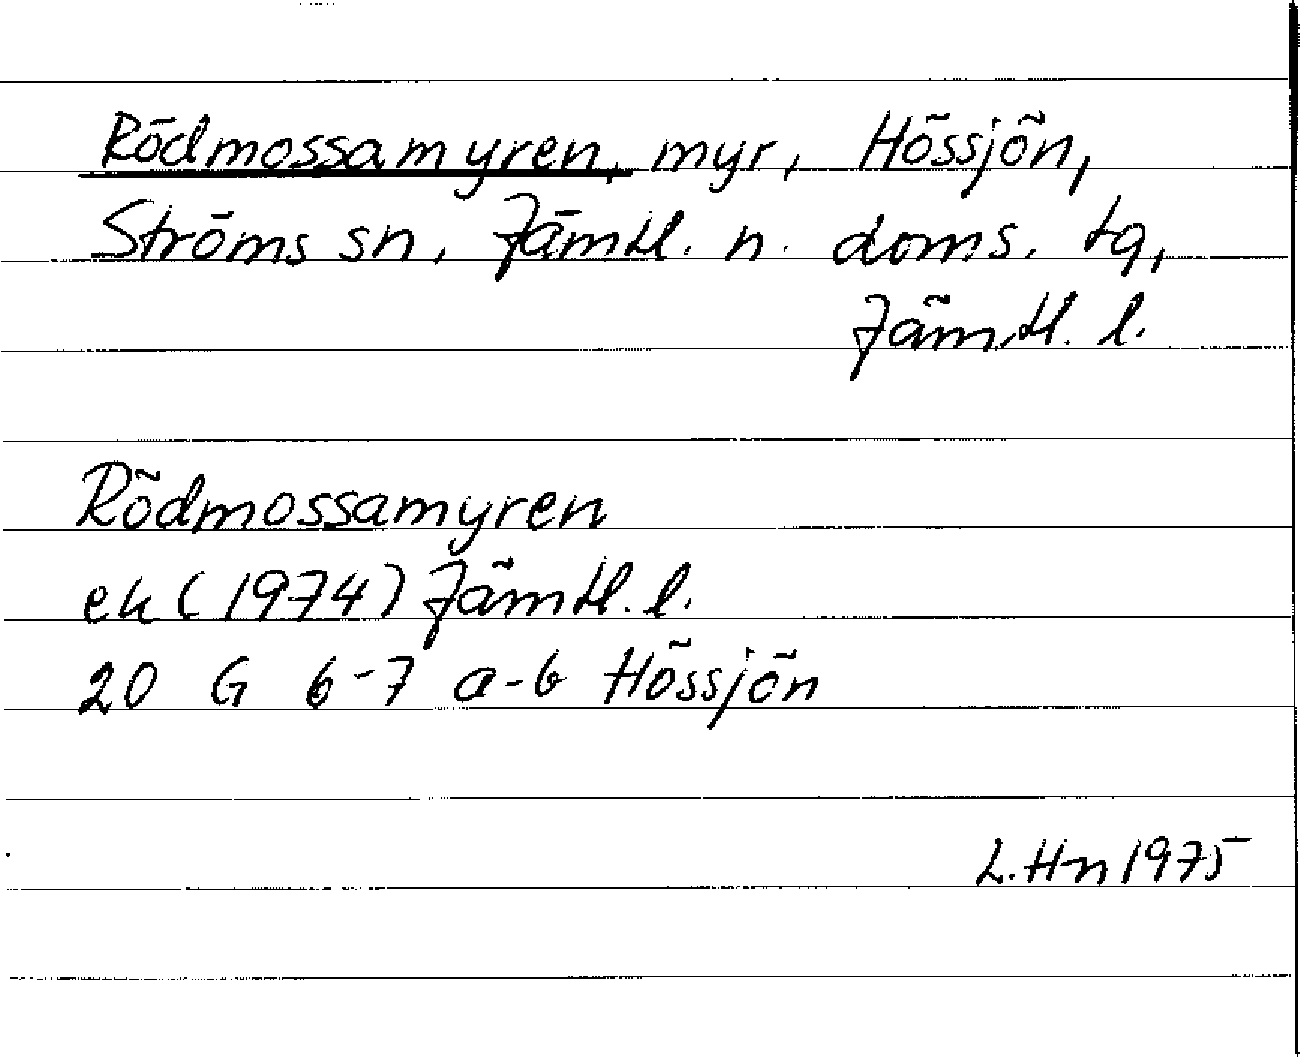 Rödmossamyren, myr, Hössjön,
Ströms sn, Jämtl. n. doms. tg,
Jämtl. l.
Rödmossamyren
ek (1974) Jämtl. l.
20 G 6-7 a-b Hössjön
L. Hn 1975